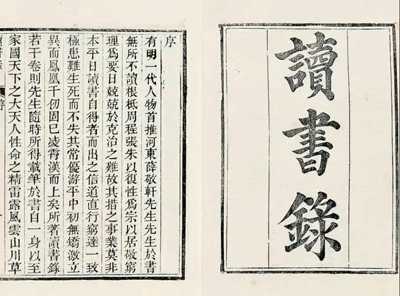 讀書錄
序
有明一代人物首推河東薛敬軒先生先生於書
無所不讀根柢周程張朱以復性爲宗以居敬窮
理爲要日兢兢於克治之難故其措之事業莫非
本平日讀書自得者而出之信道直行窮達一致
極患難生死而不失其常優游平中初無矯激立
異而鳳凰千仞固已凌霄漢而上矣所著讀書錄
若干卷則先生隨時所得載筆於書自一身以至
家國天下之大天人性命之精雷露風雲山川草